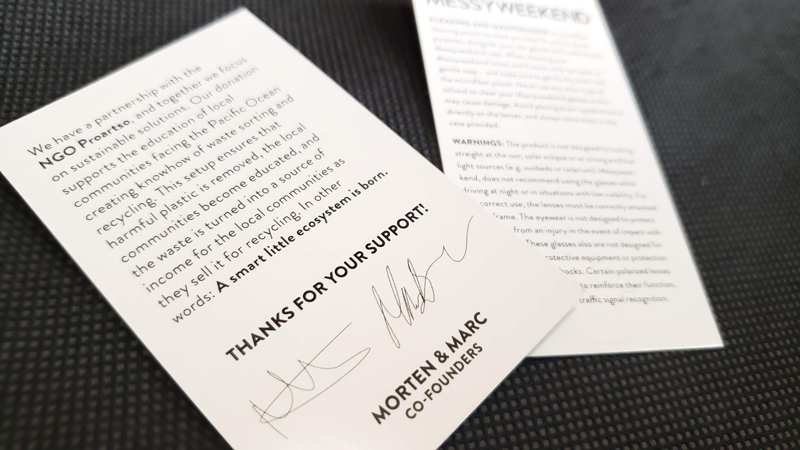 We have a partnership with the
NGO Proartso, and together we focus
on sustainable solutions. Our donation
supports the education of local
communities facing the Pacific Ocean
creating knowhow of waste sorting and
recycling. This setup ensures that
harmful plastic is removed, the local
communities become educated, and
the waste is turned into a source of
income for the local communities as
they sell it for recycling. In other
words: A smart little ecosystem is born.
THANKS FOR YOUR SUPPORT!
MORTEN & MARC
CO-FOUNDERS
MESSYWEEKEND
CLEANING AND MAINTENANCE
may cause damage.
directly on the lenses, and
case provided.
WARNINGS: The product is not designed for looking
straight at the sun, solar eclipse or on strong artificial
light sources (e.g. sunbeds or solarium). Messyweek-
kend, does not recommend using the glasses while
driving at night or in situations with low visibility. For
correct use, the lenses must be correctly attached
frame. The eyewear is not designed to protect
from an injury in the event of impact with
These glasses also are not designed for
protective equipment or protection
ocks. Certain polarized lenses
to reinforce their function,
traffic signal recognition.